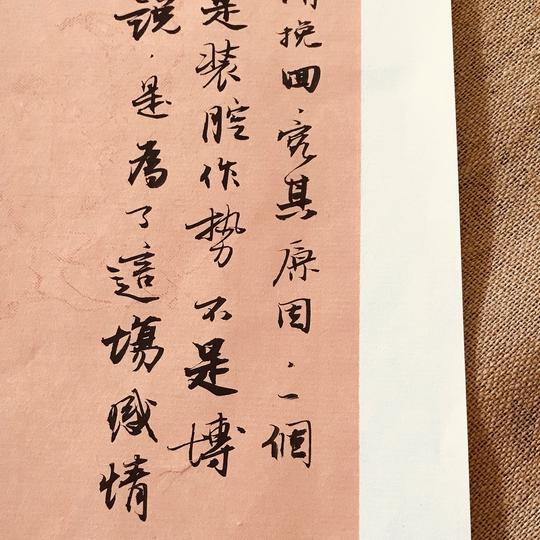 挽回、究其原因、一個
是装腔作势不是博
說、是為了這塲感情